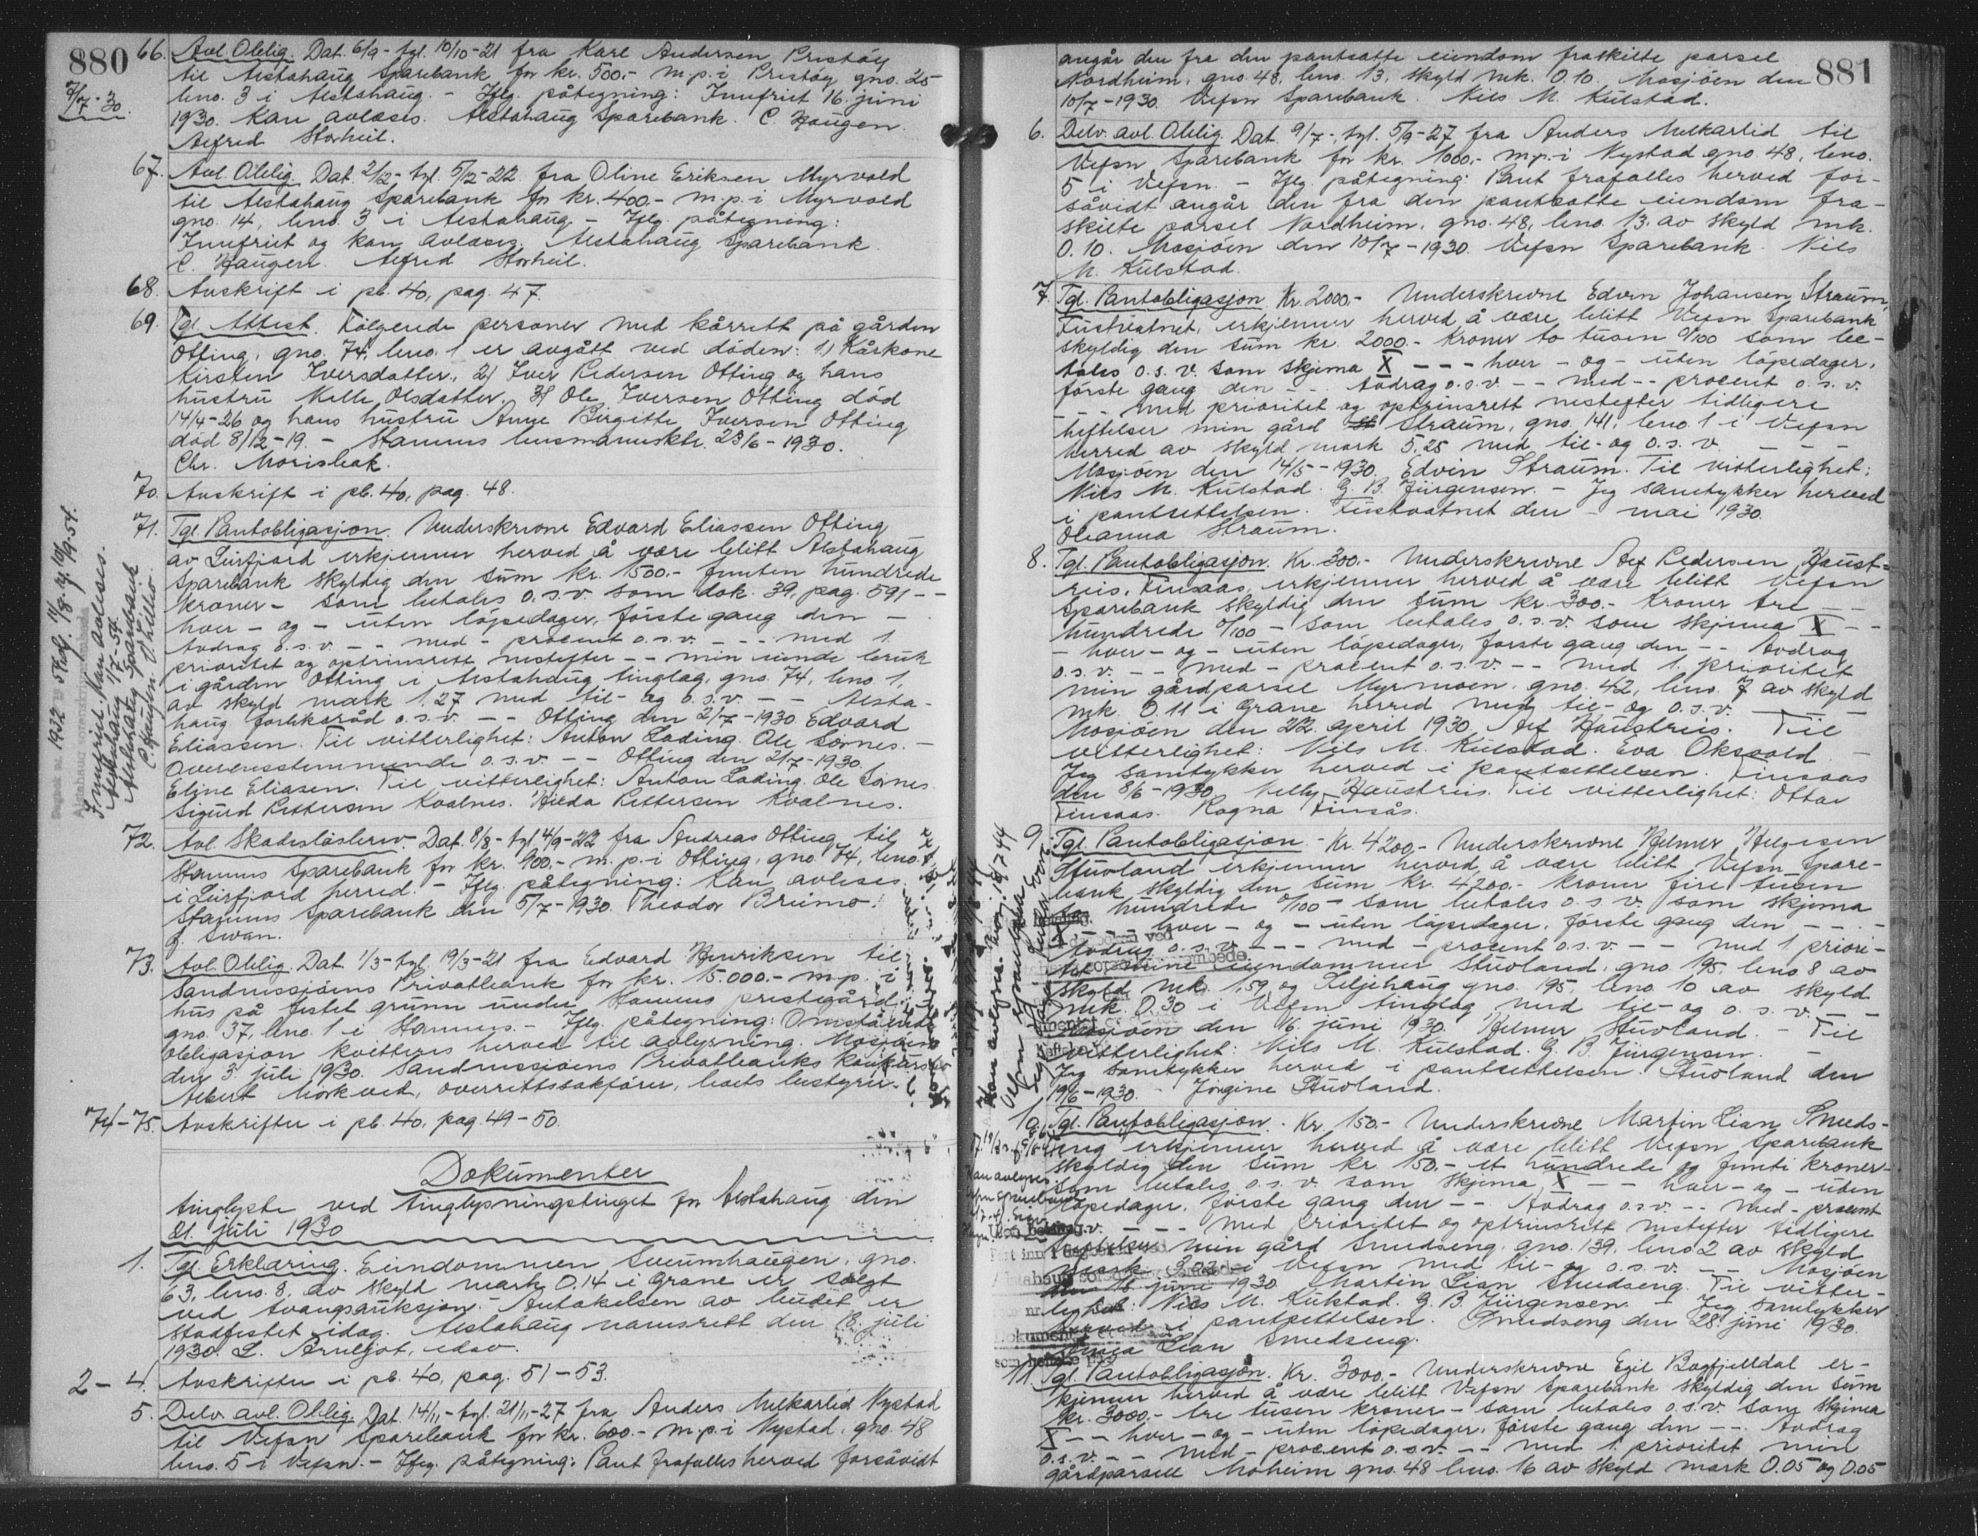 880
7/7-30.
66. Avl. Oblig. Dat. 6/9 - tgl. 10/10-21 fra Karl Andersen Pristöy
til Alstahaug Sparebank for kr. 500.- m.p.i Pristöy gno. 25
bno. 3 i Alstahaug. - Iflg. påtegning: Innfriet 16. juni
1930. Kan avlæses. Alstahaug Sparebank. C. Haugen.
Alfred Storheil.
67. Avl. Oblig. Dat. 2/12 - tgl. 5/12-22 fra Oline Eriksen Myrvold
til Alstahaug Sparebank for kr. 400.- m.p.i Myrvold
gno. 14, bno. 3 i Alstahaug. - Iflg. påtegning:
Innfriet og kan avlæses. Alstahaug Sparebank.
C. Haugen. Alfred Storheil.
68. Avskrift i pb. 40, pag. 47.
69. Tgl. Attest. Følgende personer med kårrett på gården
Otting, gno. 74, bno. 1 er avgått ved döden: 1) Kårkone
Kirsten Iversdatter, 2) Iver Pedersen Otting og hans
hustru Kelle Olsdatter, 3) Ole Iversen Otting död
14/4-26 og hans hustru Anne Birgitte Iversen Otting
död 8/12-19. - Stamnes lensmannsktr. 23/6-1930.
Chr. Morisbak.
70. Avskrift i pb. 40, pag. 48.
71. Tgl. Pantobligasjon. Underskrevne Edvard Eliassen Otting
av Leirfjord erkjenner herved å være blitt Alstahaug
Sparebank skyldig den sum kr. 1500.- femten hundrede
kroner - som betales o.s.v. som dok. 39, pag. 591 - -
hver - og - uten löpedager, förste gang den - .
Avdrag o.s.v. - - med - procent o.s.v. - - - med 1.
prioritet og optrinsrett nestefter - - min eiende bruk
i gården Otting i Alstahaug tinglag, gno. 74, bno. 1,
av skyld mark 1.27 med til- og o.s.v. - - Alsta-
haug forliksråd o.s.v. - - Otting den 2/7-1930 Edvard
Eliassen. Til vitterlighet: Anton Lading. Ole Sörnes. -
Overensstemmende o.s.v. - - Otting den 2/7-1930.
Eline Eliasen. Til vitterlighet: Anton Lading. Ole Sörnes.
Sigurd Pettersen Kvalnes. Hilda Pettersen Kvalnes.
Innfriet. Kan avleses.
Alstahaug 1/7-54.
Alstahaug Sparebank
C. Haugen
72. Avl. Skadeslösbrev. Dat. 8/8 - tgl. 4/9-22 fra Andreas Otting til
Stamnes Sparebank for kr. 900.- m.p.i Otting, gno. 74, bno. 1,
i Leirfjord herred. - Iflg. påtegning: Kan avleses.
Stamnes Sparebank den 5/7-1930. Theodor Brümo.
J. Swan.
73. Avl. Oblig. Dat. 1/3 - tgl. 19/3-21 fra Edvard Henriksen til
Sandnessjöens Privatbank for kr. 15.000.- m.p.i
hus på festet grunn under Stamnes prestegård,
gno. 37, bno. 1 i Stamnes. - Iflg. påtegning: Omstående
obligasjon kvitteres herved til avlysning. Mosjöen
den 3. juli 1930. Sandnessjöens Privatbanks konkursbo
Albert Mörkved, overrettssakförer, boets bestyrer.
74-75. Avskrifter i pb. 40, pag. 49-50.
Dokumenter
tinglyste ved tinglysningstinget for Alstahaug den
21. juli 1930.
1. Tgl. Erklæring. Eiendommen Sveumhaugen, gno.
63, bno. 8, av skyld mark 0.14 i Grane er solgt
ved tvangsauksjon. - Antakelsen av budet er
stadfestet idag. Alstahaug namsrett den 8. juli
1930. L. Arneljot, edsv.
2-4. Avskrifter i pb. 40, pag. 51-53.
5. Delv. avl. Oblig. Dat. 14/11 - tgl. 21/11-27 fra Anders Melkarlid Nystad
til Vefsn Sparebank for kr. 600.- m.p.i Nystad, gno. 48
bno. 5 i Vefsn. - Iflg. påtegning: Pant frafalles herved forsåvidt
881
angår den fra den pantsatte eiendom fraskilte parsel
Nordheim, gno. 48, bno. 13, skyld mk. 0.10. Mosjöen den
10/7-1930. Vefsn Sparebank. Nils M. Kulstad.
6. Delv. avl. Oblig. Dat. 9/7 - tgl. 5/9-27 fra Anders Melkarlid til
Vefsn Sparebank for kr. 1000.- m.p.i Nystad gno. 48, bno.
5 i Vefsn. - Iflg. påtegning: Pant frafalles herved for-
såvidt angår den fra den pantsatte eiendom fra-
skilte parsel Nordheim, gno. 48, bno. 13, av skyld mk.
0.10. Mosjöen den 10/7-1930. Vefsn Sparebank. Nils
M. Kulstad.
7. Tgl. Pantobligasjon. Kr. 2000.- Underskrevne Edvin Johansen Straum,
Fustvatnet, erkjenner herved å være blitt Vefsn Sparebank
skyldig den sum kr. 2000.- kroner to tusen 0/100 som be-
tales o.s.v. som skjema X - - - hver - og - uten löpedager,
förste gang den - - . Avdrag o.s.v. - - med - - procent o.s.v.
- - med prioritet og optrinsrett nestefter tidligere
heftelser min gård Straum, gno. 141, bno. 1 i Vefsn
herred av skyld mark 5.25 med til- og o.s.v. - -
Mosjöen den 14/5-1930. Edvin Straum. Til vitterlighet:
Nils M. Kulstad. G. B. Jürgensen. - Jeg samtykker herved
i pantsettelsen. Fustvatnet den - mai 1930.
Oleanna Straum.
8. Tgl. Pantobligasjon. Kr. 300.- Underskrevne Alf Pedersen Haust-
reis, Finsaas, erkjenner herved å være blitt Vefsn
Sparebank skyldig den sum kr. 300.- kroner tre - -
hundrede 0/100 - som betales o.s.v. som skjema X - -
- hver - og - uten löpedager, förste gang den - - . Avdrag
o.s.v. - - med - procent o.s.v. - - med 1. prioritet
min gårdparsel Myrmoen, gno. 42, bno. 7 av skyld
mk. 0.11 i Grane herred med til- og o.s.v.
Mosjöen den 22. april 1930. Alf Haustreis. Til
vitterlighet: Nils M. Kulstad. Eva Oksvold. -
Jeg samtykker herved i pantsettelsen. Finsaas
den 8/6-1930. Nelly Haustreis. Til vitterlighet: Ottar
Finsaas. Ragna Finsås.
9. Tgl. Pantobligasjon. Kr. 4200.- Underskrevne Helmer Helgesen
Stuvland erkjenner herved å være blitt Vefsn Spare-
bank skyldig den sum kr. 4200.- kroner fire tusen
to hundrede 0/100 - som betales o.s.v. som skjema
- - - hver - og - uten löpedager, förste gang den - - .
Avdrag o.s.v. - - - med - procent o.s.v. - - med 1. priori-
tet mine eiendommer Stuvland, gno. 195, bno 8 av
skyld mk. 1.59 og Keljehaug gno. 195, bno. 10 av skyld
mk. 0.30 i Vefsn tinglag med til- og o.s.v. -
Mosjöen den 16. juni 1930. Helmer Stuvland - Til
vitterlighet: Nils M. Kulstad. G. B. Jürgensen. -
Jeg samtykker herved i pantsettelsen. Stuvland den
19/6-1930. Jörgine Stuvland.
10. Tgl. Pantobligasjon. - Kr. 150.- Underskrevne Martin Lian, Smeds-
eng erkjenner herved å være blitt Vefsn Sparebank
skyldig den sum kr. 150.- et hundrede og femti kroner -
som betales o.s.v. som skjema X - - - hver - og - uten
löpedager, förste gang den - - . Avdrag o.s.v. - - med - procent
o.s.v. - - - med prioritet og optrinsrett nestefter tidligere
heftelser min gård Smedseng, gno. 139, bno 2 av skyld
mark i Vefsn med til- og o.s.v. - - Mosjöen
den 16. juni 1930. Martin Lian Smedseng. Til vitter-
lighet: Nils M. Kulstad. G. B. Jürgensen. - Jeg samtykker
herved i pantsettelsen. Smedseng den 28. juni 1930.
Lian Smedseng.
11. Tgl. Pantobligasjon. Kr. 3000.- Underskrevne Egil Bagfjelldal er-
kjenner herved å være blitt Vefsn Sparebank skyldig den sum
kr. 3000.- tre tusen kroner - som betales o.s.v. som skjema
X - - hver - og - uten löpedager, förste gang den - - . Avdrag
o.s.v. - - med - procent o.s.v. - - med 1. prioritet min
gårdparsell Moheim gno. 48 bno. 16 av skyld mark 0.05 og 0.05